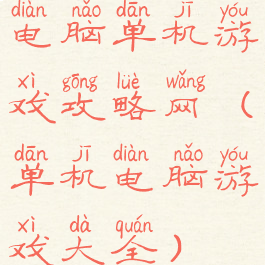 diàn nǎo dān jī yóu
电脑单机游
xì gōng lüè wǎng
戏攻略网（
dān jī diàn nǎo yóu
单机电脑游
xì dà quán
戏大全）